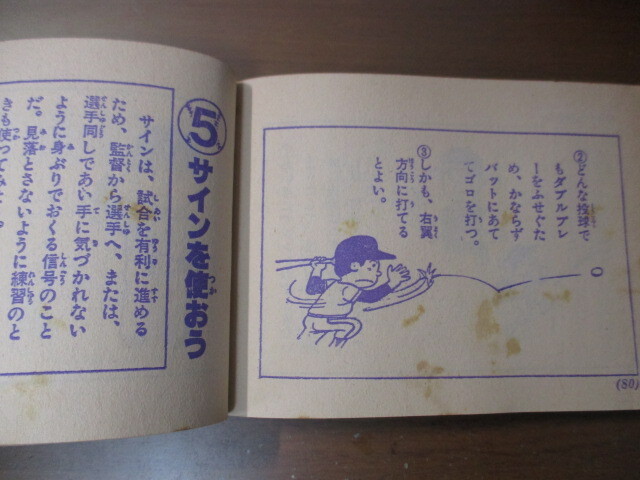 ②どんな投球で
もダブルプレ
ーをふせぐた
め、かならず
バットにあて
てゴロを打つ。
③しかも、右翼
方向に打てる
とよい。
(80)
⑤サインを使おう
サインは、試合を有利に進める
ため、監督から選手へ、または、
選手同しであい手に気づかれない
ように身ぶりでおくる信号のこと
だ。見落とさないように練習のと